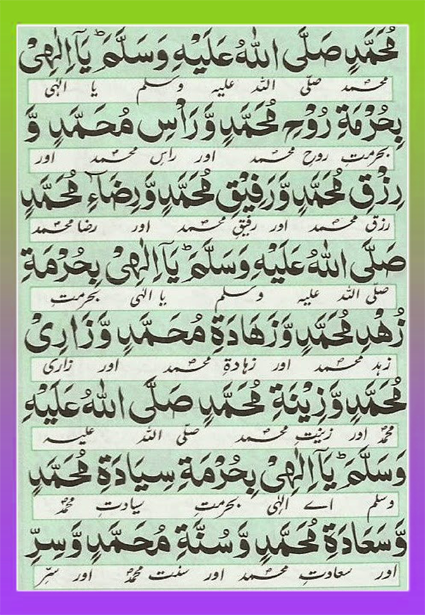 مُحَمَّدٍ صَلَّى اللهُ عَلَيْهِ وَسَلَّمَ ؕ يَآ اِلٰهِيْ
محمد صلی اللہ علیہ وسلم یا الٰہی
بِحُرْمَةِ رُوْحِ مُحَمَّدٍ وَّرَاْسِ مُحَمَّدٍ وَّ
بحرمتِ روح محمد اور راس محمد اور
رِزْقِ مُحَمَّدٍ وَّرَفِيْقِ مُحَمَّدٍ وَّرِضَآءِ مُحَمَّدٍ
رزق محمد اور رفیق محمد اور رضا محمد
صَلَّى اللهُ عَلَيْهِ وَسَلَّمَ ؕ يَآ اِلٰهِيْ بِحُرْمَةِ
صلی اللہ علیہ وسلم یا الٰہی بحرمتِ
زُهْدِ مُحَمَّدٍ وَّزَهَادَةِ مُحَمَّدٍ وَّزَارِيْ
زہد محمد اور زہادۃ محمد اور زاری
مُحَمَّدٍ وَّزِيْنَةِ مُحَمَّدٍ صَلَّى اللهُ عَلَيْهِ
محمد اور زینت محمد صلی اللہ علیہ
وَسَلَّمَ ؕ يَآ اِلٰهِيْ بِحُرْمَةِ سِيَادَةِ مُحَمَّدٍ
وسلم اے الٰہی بحرمتِ سیادت محمد
وَّسَعَادَةِ مُحَمَّدٍ وَّسُنَّةِ مُحَمَّدٍ وَّسِرِّ
اور سعادتِ محمد اور سنت محمد اور سرّ